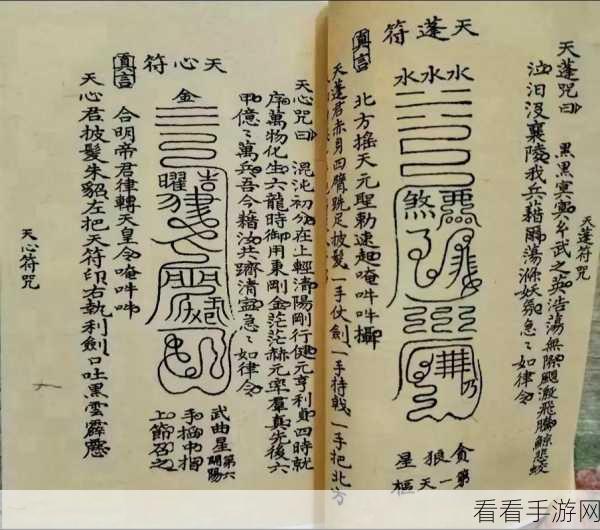 天蓬符咒
天蓬咒曰
黑黑冥冥 玄武之英 浩蕩無際 颶激飛騰 鯨悲蛟
泣 汨沒襄陵 我兵藉爾 蕩滌妖氛 急〻如律令
天蓬符
水水水
煞
貪 第一
狼 天
星 樞
真言
北方搖天元聖勅速起唵吽吽攝
天蓬君赤身四臂跣足披髮一手仗劍一手持戟一手把北方
天心咒曰
混沌初分在上輕清陽剛行健元亨利貞四時就
序萬物化生六龍時御用東剛金茫茫赫元率羣真先後六
甲億〻萬兵吾今藉汝共躋清寍急〻如律令
天心符
金
曜
武曲星 第六 開陽
手掐中指
上節召之
真言
合明帝君律轉天皇令唵吽吽
天心君披髮朱貂左把天符印右執利劍口吐黑雲霹靂
天心符咒
看看手游网